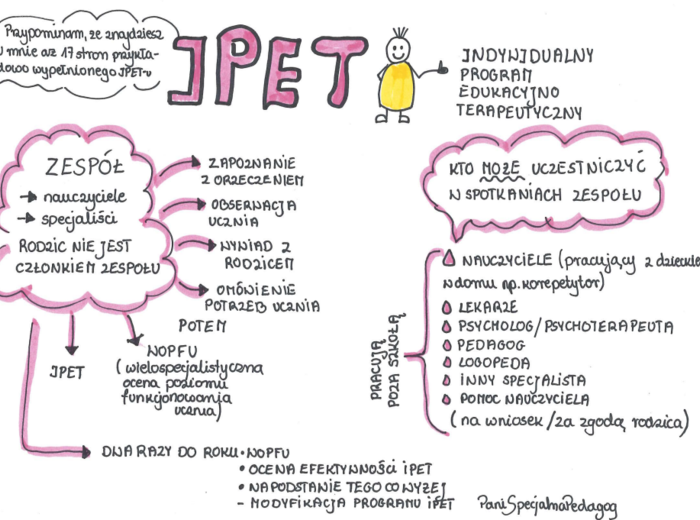 Przypominam, że znajdziesz
u mnie aż 17 stron przykła-
dowo wypełnionego IPET-u
IPET
INDYWIDUALNY
PROGRAM
EDUKACYJNO
TERAPEUTYCZNY
ZESPÓŁ
→ nauczyciele
→ specjaliści
RODZIC NIE JEST
CZŁONKIEM ZESPOŁU
ZAPOZNANIE
Z ORZECZENIEM
OBSERWACJA
UCZNIA
WYWIAD Z
RODZICEM
OMÓWIENIE
POTRZEB UCZNIA
POTEM
IPET
WOPFU
(wielospecjalistyczna
ocena poziomu
funkcjonowania
ucznia)
DWA RAZY DO ROKU • WOPFU
• OCENA EFEKTYWNOŚCI IPET
• NA PODSTANIE TEGO CO WYŻEJ
- MODYFIKACJA PROGRAMU IPET
KTO MOŻE UCZESTNICZYĆ
W SPOTKANIACH ZESPOŁU
PRACUJĄ
POZA SZKOŁĄ
NAUCZYCIELE (pracujący z dzieckie
w domu np. korepetytor)
LEKARZE
PSYCHOLOG/PSYCHOTERAPEUTA
PEDAGOG
LOGOPEDA
INNY SPECJALISTA
POMOC NAUCZYCIELA
(na wniosek/za zgodą rodzica)
PaniSpecjalnaPedagog